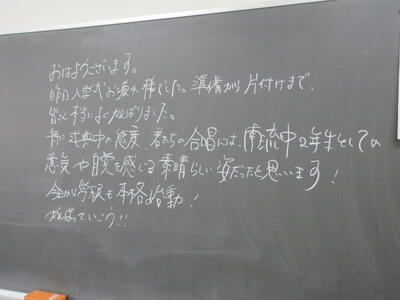 おはようございます。
昨日入学式お疲れ様でした。準備から片付けまで、
皆さん本当によくがんばりました。
特に式典中の態度、君たちの合唱には、南流中2年生としての
意気や自覚を感じる素晴らしい姿だったと思います!
今日から学級も本格始動!
がんばっていこう!!